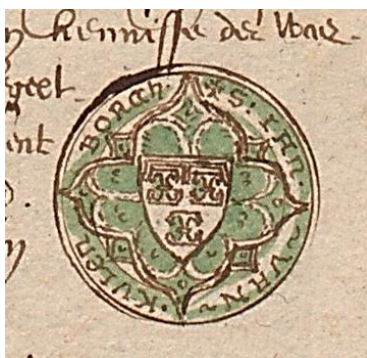 kennisse der waer
geet
ent
✠ S. IAN. VAN. KVLEN BORCH.